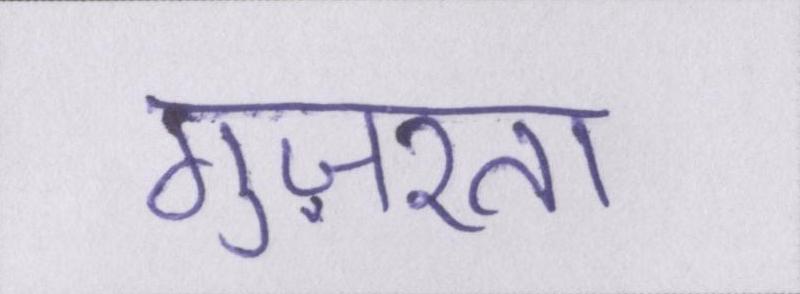 गुज़रता